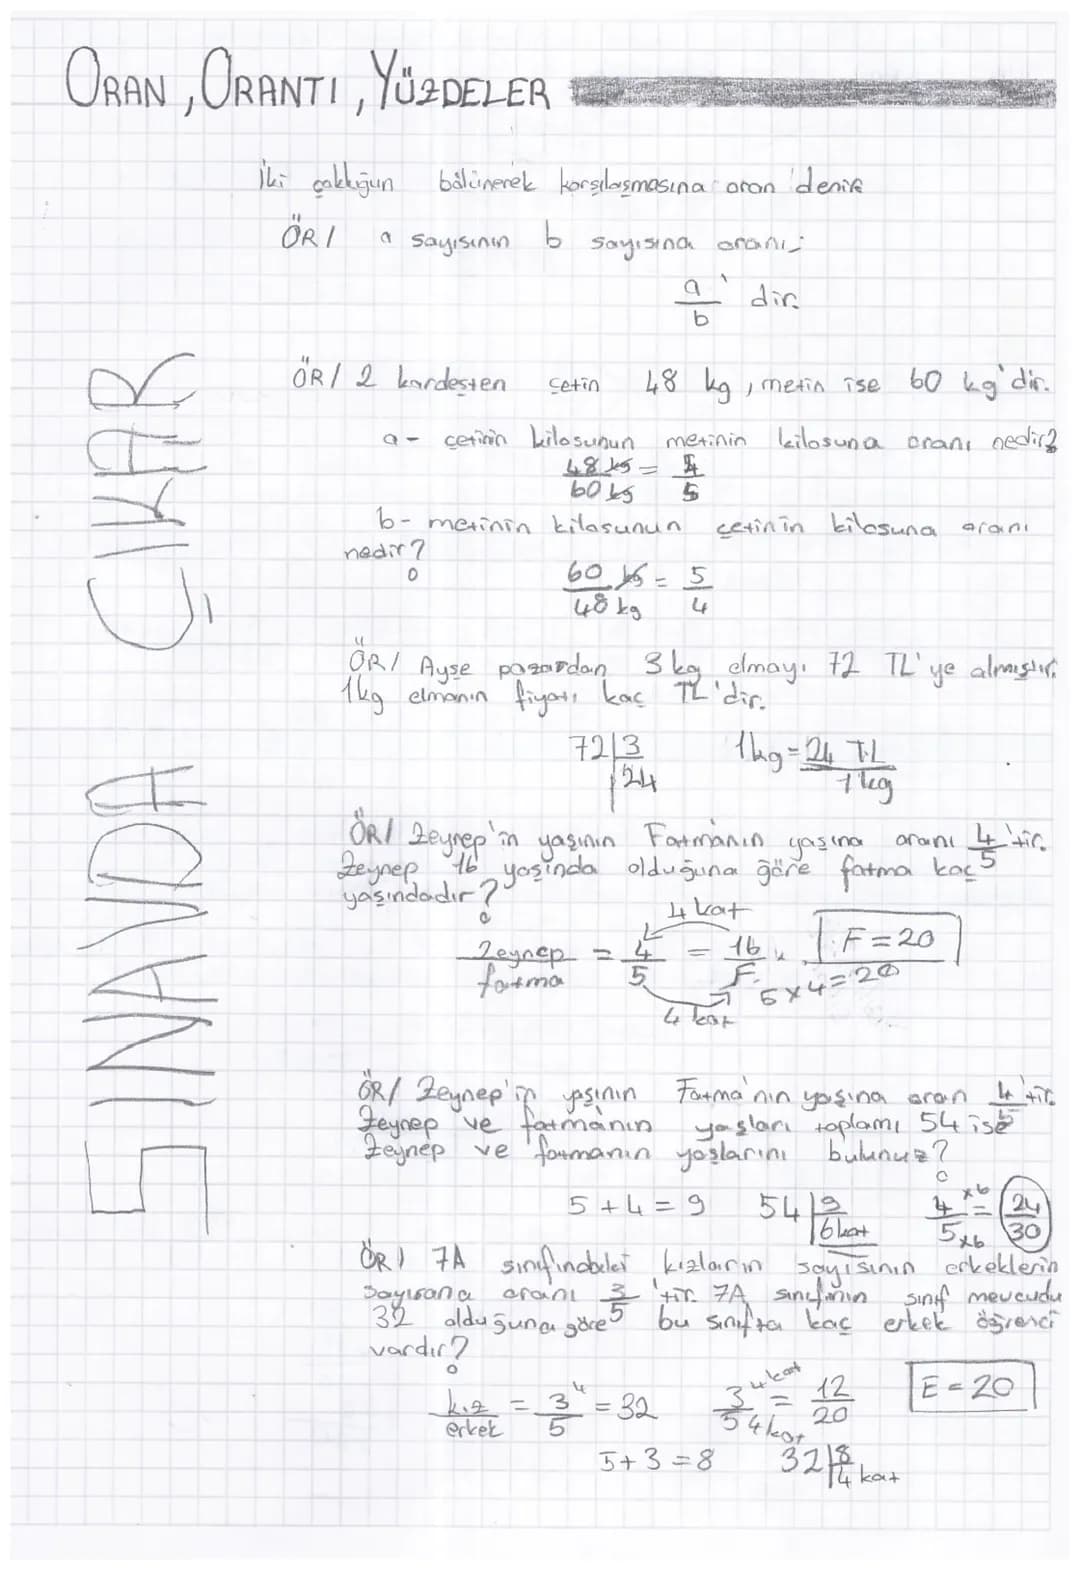 ORAN, ORANTI, YÜZDELER
İki çokluğun bölünerek karşılaşmasına oran denir
ÖR/ a sayısının b sayısına oranı;
a/b' dir.
ÖR/ 2 kardeşten çetin 48 kg, metin ise 60 kg'dir.
a- çetinin kilosunun metinin kilosuna oranı nedir?
48 kg/60 kg = 4/5
b- metinin kilosunun çetinin kilosuna oranı
nedir?
60 kg/48 kg = 5/4
ÖR/ Ayşe pazardan 3 kg elmayı 72 TL'ye almıştır.
1kg elmanın fiyatı kaç TL'dir.
72 | 3
24
1kg = 24 TL/1 kg
ÖR/ Zeynep'in yaşının Fatma'nın yaşına oranı 4/5'tir.
Zeynep 16 yaşında olduğuna göre fatma kaç
yaşındadır?
4 kat
Zeynep/fatma = 4/5 = 16/F
F = 20
5x4=20
4 kat
ÖR/ Zeynep'in yaşının Fatma'nın yaşına oran 4/5'tir.
Zeynep ve fatma'nın yaşları toplamı 54 ise
Zeynep ve fatmanın yaşlarını bulunuz?
5 + 4 = 9 54 | 9 6 kat 4/5 x6 x6 = 24/30
ÖR/ 7A sınıfındaki kızların sayısının erkeklerin
sayısana oranı 3/5'tir. 7A sınıfının sınıf mevcudu
32 olduğuna göre bu sınıfta kaç erkek öğrenci
vardır?
kız/erkek = 3/5 4 = 32 3/5 4 kat 4 kat = 12/20 E = 20
5 + 3 = 8 32 | 8 4 kat
SINAVDA ÇIKAR